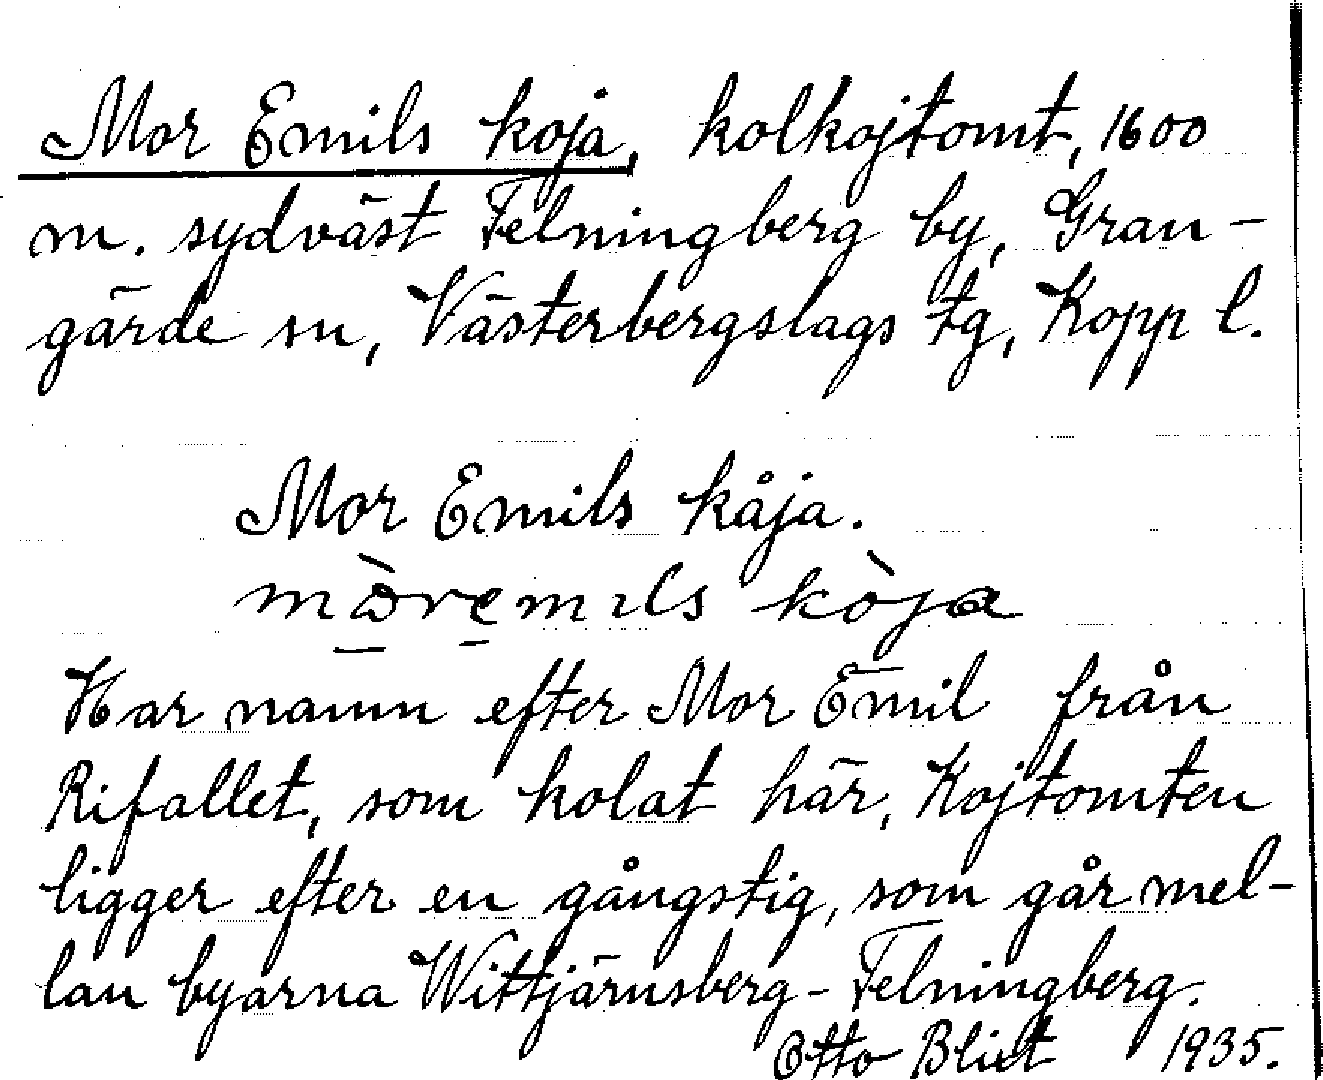 Mor Emils koja, kolkojtomt, 1600
m. sydväst Felningberg by, Gran-
gärde sn, Västerbergslags tg, Kopp l.
Mor Emils kåja.
Har namn efter Mor Emil från
Rifallet, som kolat här, Kojtomten
ligger efter en gångstig, som går mel-
lan byarna Wittjärnsberg - Felningberg.
Otto Blixt 1935.